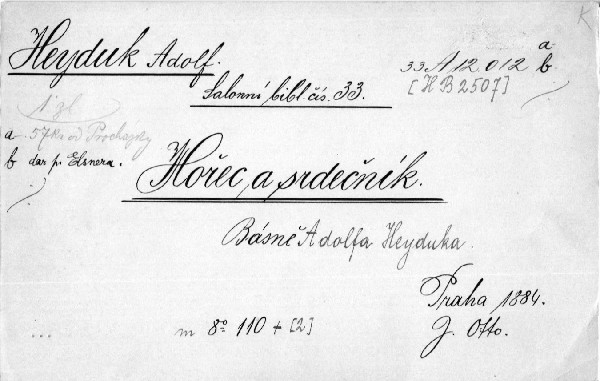 K
Heyduk Adolf.
33 A 12.012 a
b
Salonní bibl. čís. 33.
[H B 2507]
1 zl
a 57 kr od Procházky
b dar p. Elsnera.
Hořec a srdečník.
Básně Adolfa Heyduka.
Praha 1884.
J. Otto.
m 8º 110 + [2]